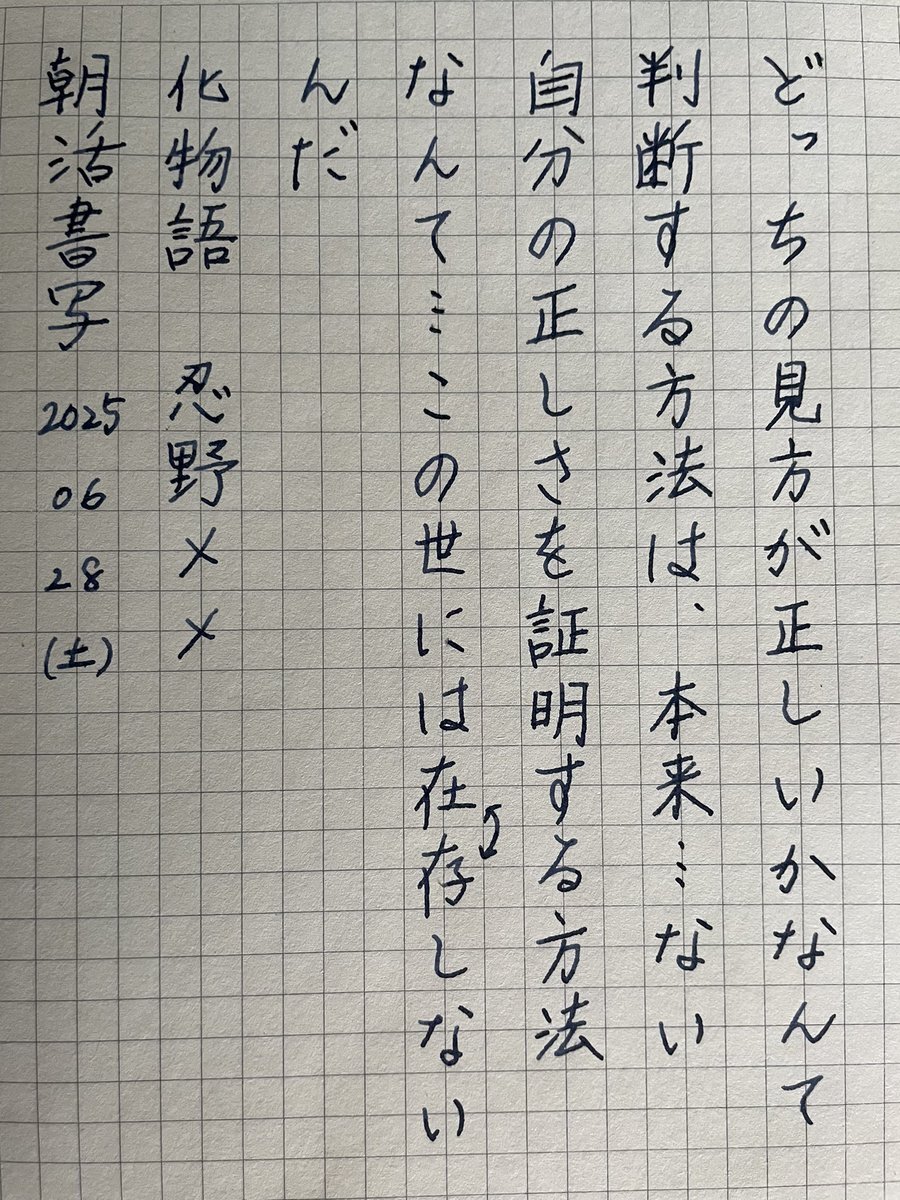 どっちの見方が正しいかなんて
判断する方法は、本来…ない
自分の正しさを証明する方法
なんて…この世には在存しない
んだ
化物語 忍野メメ
朝活書写 2025 06 28 (土)